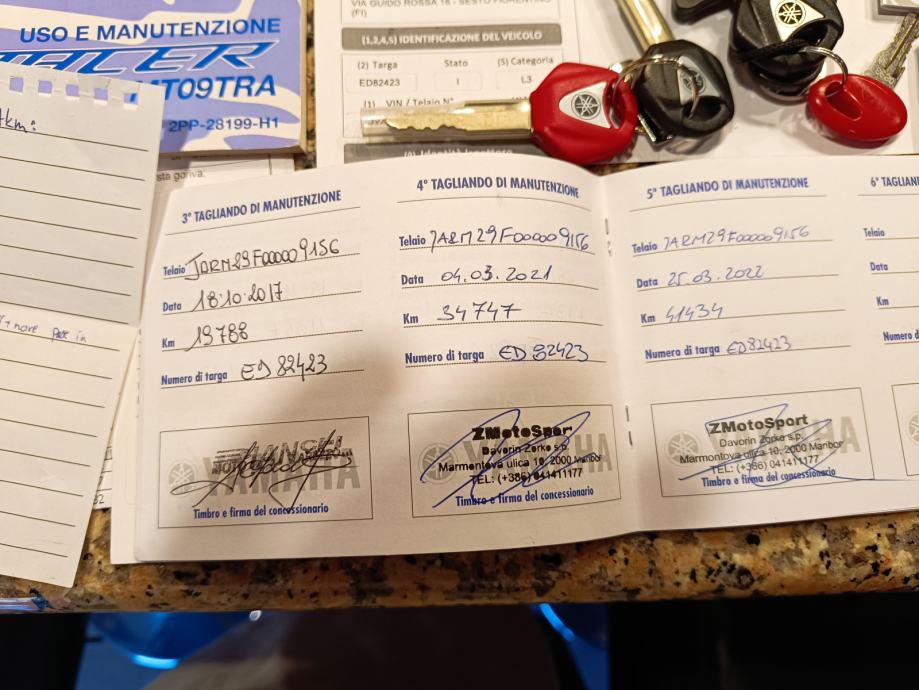 USO E MANUTENZIONE
TRACER
MT09TRA
2PP-28199-H1
VIA GUIDO ROSSA 16 - SESTO FIORENTINO
(FI)
(1,2,4,5) IDENTIFICAZIONE DEL VEICOLO
(2) Targa
Stato
(5) Categoria
ED82423
I
L3
(1) VIN / Telaio N°
km:
3° TAGLIANDO DI MANUTENZIONE
Telaio JARM29F00009156
Data 18.10.2017
Km 19788
Numero di targa ED 82423
YAMAHA
Timbro e firma del concessionario
4° TAGLIANDO DI MANUTENZIONE
Telaio JARM29F00009156
Data 04.03.2021
Km 34747
Numero di targa ED 82423
ZMotoSport
Davorin Zorko s.p.
Marmontova ulica 18, 2000 Maribor
TEL: (+386) 041411177
YAMAHA
Timbro e firma del concessionario
5° TAGLIANDO DI MANUTENZIONE
Telaio JARM29F00009156
Data 25.03.2022
Km 41434
Numero di targa ED82423
ZMotoSport
Davorin Zorko s.p.
Marmontova ulica 18, 2000 Maribor
TEL: (+386) 041411177
YAMAHA
Timbro e firma del concessionario
6° TAGLIANDO
Telaio
Data
Km
Numero di